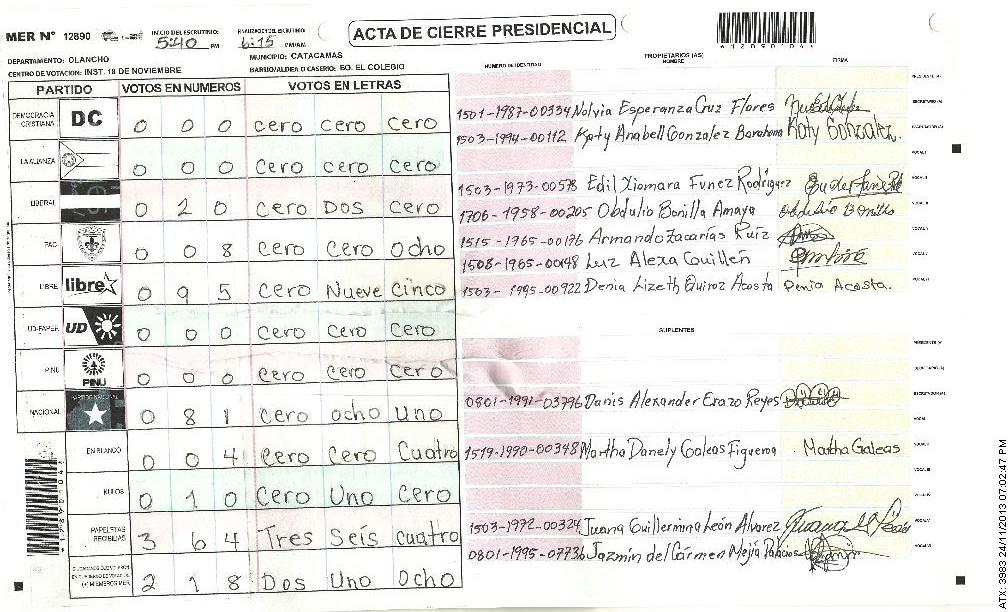 MER Nº 12890
INICIO DEL ESCRUTINIO: 5:40 PM
6:15 PM/AM
ACTA DE CIERRE PRESIDENCIAL
DEPARTAMENTO: OLANCHO
MUNICIPIO: CATACAMAS
CENTRO DE VOTACION: INST. 18 DE NOVIEMBRE
BARRIO/ALDEA O CASERIO: BO. EL COLEGIO
PARTIDO VOTOS EN NUMEROS VOTOS EN LETRAS
DEMOCRACIA CRISTIANA DC 0 0 0 cero cero cero
LA ALIANZA 0 0 0 cero cero cero
LIBERAL 0 2 0 cero Dos cero
PAC 0 0 8 cero cero ocho
LIBRE libre 0 9 5 cero Nueve cinco
UD-FAPER UD 0 0 0 cero cero cero
PINU PINU 0 0 0 cero cero cero
NACIONAL 0 8 1 cero ocho uno
EN BLANCO 0 0 4 cero cero cuatro
NULOS 0 1 0 cero uno cero
PAPELETAS RECIBIDAS 3 6 4 Tres Seis cuatro
(+) MIEMBROS MER 2 1 8 Dos Uno Ocho
NUMERO DE IDENTIDAD
PROPIETARIOS (AS)
NOMBRE
FIRMA
1501-1987-00334 Nolvia Esperanza Cruz Flores
1503-1994-00112 Katy Anabell Gonzalez Barahona Katy Gonzalez.
1503-1973-00578 Edil Xiomara Funez Rodríguez
1706-1958-00205 Obdulio Bonilla Amaya Obdulio Bonilla
1515-1965-00176 Armando Zacarías Ruíz
1508-1965-00148 Luz Alexa Guillen
1503-1995-00922 Denia Lizeth Quiroz Acosta Denia Acosta.
SUPLENTES
0801-1991-03796 Danis Alexander Erazo Reyes
1519-1990-00348 Martha Danely Galeas Figueroa Martha Galeas
1503-1972-00324 Juana Guillermina León Alvarez
0801-1995-07736 Jazmin del Carmen Mejía Palacios
ATX: 3983 24/11/2013 07:02:47 PM